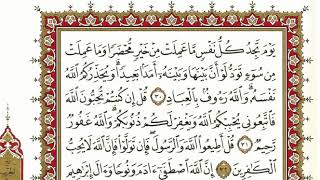 يَوۡمَ تَجِدُ كُلُّ نَفۡسٖ مَّا عَمِلَتۡ مِنۡ خَيۡرٖ مُّحۡضَرٗا وَمَا عَمِلَتۡ
مِن سُوٓءٖ تَوَدُّ لَوۡ أَنَّ بَيۡنَهَا وَبَيۡنَهُۥٓ أَمَدَۢا بَعِيدٗاۗ وَيُحَذِّرُكُمُ ٱللَّهُ
نَفۡسَهُۥۗ وَٱللَّهُ رَءُوفُۢ بِٱلۡعِبَادِ ٣٠ قُلۡ إِن كُنتُمۡ تُحِبُّونَ ٱللَّهَ
فَٱتَّبِعُونِي يُحۡبِبۡكُمُ ٱللَّهُ وَيَغۡفِرۡ لَكُمۡ ذُنُوبَكُمۡۚ وَٱللَّهُ غَفُورٞ
رَّحِيمٞ ٣١ قُلۡ أَطِيعُواْ ٱللَّهَ وَٱلرَّسُولَۖ فَإِن تَوَلَّوۡاْ فَإِنَّ ٱللَّهَ لَا يُحِبُّ
ٱلۡكَٰفِرِينَ ٣٢ إِنَّ ٱللَّهَ ٱصۡطَفَىٰٓ ءَادَمَ وَنُوحٗا وَءَالَ إِبۡرَٰهِيمَ